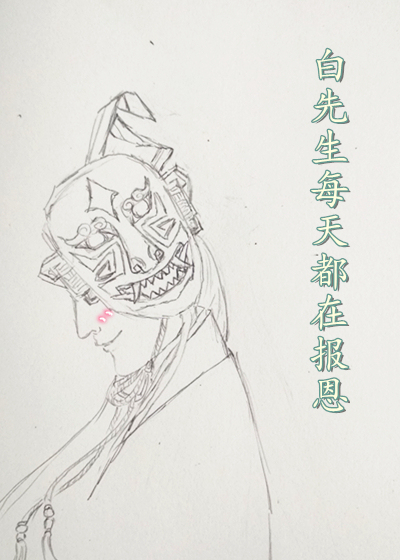 白先生每天都在报恩